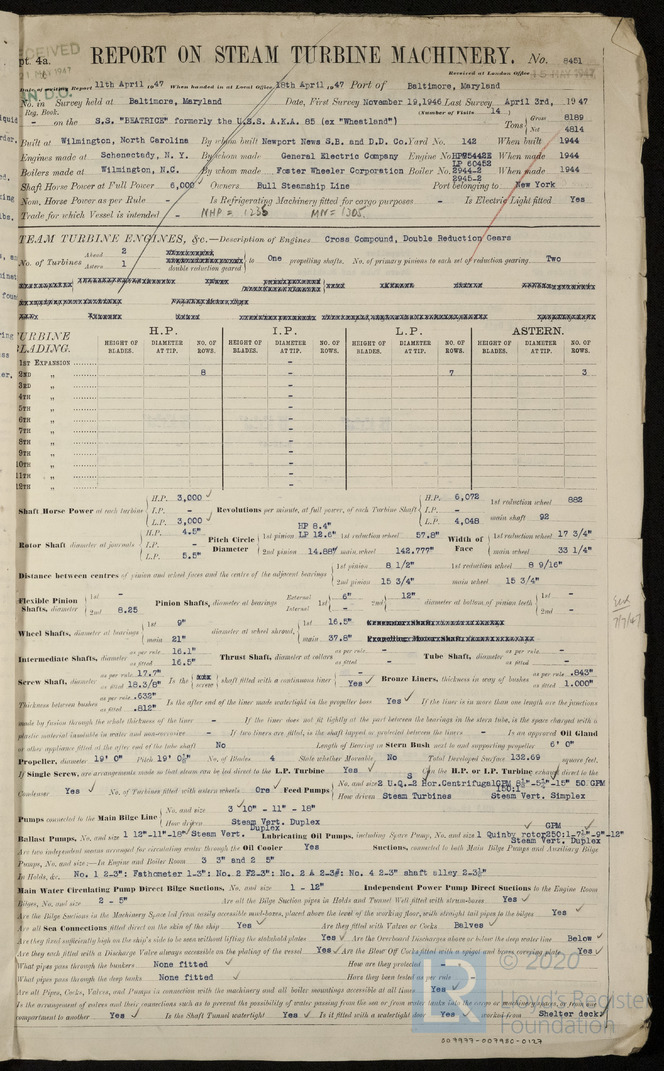 pt. 4a.
RECEIVED
REPORT ON STEAM TURBINE MACHINERY. No. 8451
Received at London Office 15 MAY 1947
Date of writing Report 11th April 1947 When handed in at Local Office 18th April 1947 Port of Baltimore, Maryland
No. in Survey held at Baltimore, Maryland Date, First Survey November 19,1946 Last Survey April 3rd, 1947
Reg. Book. (Number of Visits 14 )
- on the S.S. "BEATRICE" formerly the U.S.S. A.K.A. 85 (ex "Wheatland") Tons Gross 8189
Net 4814
Built at Wilmington, North Carolina By whom built Newport News S.B. and D.D. Co. Yard No. 142 When built 1944
Engines made at Schenectady, N. Y. By whom made General Electric Company Engine No. HP 75442 When made 1944
LP 60452
Boilers made at Wilmington, N.C. By whom made Foster Wheeler Corporation Boiler No. 2944-2 When made 1944
2945-2
Shaft Horse Power at Full Power 6,000 Owners Bull Steamship Line Port belonging to New York
Nom. Horse Power as per Rule - Is Refrigerating Machinery fitted for cargo purposes - Is Electric Light fitted Yes
Trade for which Vessel is intended - NHP = 1235 MN = 1305.
STEAM TURBINE ENGINES, &c.—Description of Engines Cross Compound, Double Reduction Gears
No. of Turbines Ahead 2 Astern 1 double reduction geared to One propelling shafts. No. of primary pinions to each set of reduction gearing Two
TURBINE BLADING. H.P. I.P. L.P. ASTERN.
HEIGHT OF BLADES. DIAMETER AT TIP. NO. OF ROWS. HEIGHT OF BLADES. DIAMETER AT TIP. NO. OF ROWS. HEIGHT OF BLADES. DIAMETER AT TIP. NO. OF ROWS. HEIGHT OF BLADES. DIAMETER AT TIP. NO. OF ROWS.
1ST EXPANSION -
2ND „ 8 - 7 3
3RD „ -
4TH „ -
5TH „ -
6TH „ -
7TH „ -
8TH „ -
9TH „ -
10TH „ -
11TH „ -
12TH „ -
Shaft Horse Power at each turbine H.P. 3,000 I.P. - L.P. 3,000 Revolutions per minute, at full power, of each Turbine Shaft H.P. 6,072 I.P. - L.P. 4,048 1st reduction wheel 882 main shaft 92
Rotor Shaft diameter at journals H.P. 4.5" I.P. - L.P. 5.5" Pitch Circle Diameter 1st pinion HP 8.4" LP 12.6" 1st reduction wheel 57.8" 2nd pinion 14.88" main wheel 142.777" Width of Face 1st reduction wheel 17 3/4" main wheel 33 1/4"
Distance between centres of pinion and wheel faces and the centre of the adjacent bearings 1st pinion 8 1/2" 2nd pinion 15 3/4" 1st reduction wheel 8 9/16" main wheel 15 3/4"
Flexible Pinion Shafts, diameter 1st - 2nd 8.25 Pinion Shafts, diameter at bearings External Internal 1st 6" - 2nd 12" diameter at bottom of pinion teeth 1st - 2nd -
Wheel Shafts, diameter at bearings 1st 9" main 21" diameter at wheel shroud, 1st 16.5" main 37.8"
Intermediate Shafts, diameter as per rule 16.1" as fitted 16.5" Thrust Shaft, diameter at collars as per rule - as fitted - Tube Shaft, diameter as per rule - as fitted -
Screw Shaft, diameter as per rule 17.7" as fitted 18.3/8" Is the screw shaft fitted with a continuous liner Yes Bronze Liners, thickness in way of bushes as per rule .843" as fitted 1.000"
Thickness between bushes as per rule .632" as fitted .812" Is the after end of the liner made watertight in the propeller boss Yes If the liner is in more than one length are the junctions
made by fusion through the whole thickness of the liner - If the liner does not fit tightly at the part between the bearings in the stern tube, is the space charged with a
plastic material insoluble in water and non-corrosive - If two liners are fitted, is the shaft lapped or protected between the liners - Is an approved Oil Gland
or other appliance fitted at the after end of the tube shaft No Length of Bearing in Stern Bush next to and supporting propeller 6' 0"
Propeller, diameter 19' 0" Pitch 19' 0½" No. of Blades 4 State whether Moveable No Total Developed Surface 132.69 square feet.
If Single Screw, are arrangements made so that steam can be led direct to the L.P. Turbine Yes Can the H.P. or I.P. Turbine exhaust direct to the
Condenser Yes No. of Turbines fitted with astern wheels One Feed Pumps No. and size
How driven Steam Turbines Steam Vert. Simplex
Pumps connected to the Main Bilge Line No. and size 3 10" - 11" - 18"
How driven Steam Vert. Duplex
Ballast Pumps, No. and size 1 12"-11"-18" Steam Vert. Duplex Lubricating Oil Pumps, including Spare Pump, No. and size
Steam Vert. Duplex
Are two independent means arranged for circulating water through the Oil Cooler Yes Suctions, connected to both Main Bilge Pumps and Auxiliary Bilge
Pumps, No. and size:—In Engine and Boiler Room 3 3" and 2 5"
In Holds, &c. No. 1 2-3": Fathometer 1-3": No. 2 F2-3": No. 2 A 2-3": No. 4 2-3" shaft alley 2-3½"
Main Water Circulating Pump Direct Bilge Suctions, No. and size 1 - 12" Independent Power Pump Direct Suctions to the Engine Room
Bilges, No. and size 2 - 5" Are all the Bilge Suction pipes in Holds and Tunnel Well fitted with strum-boxes Yes
Are the Bilge Suctions in the Machinery Space led from easily accessible mud-boxes, placed above the level of the working floor, with straight tail pipes to the bilges Yes
Are all Sea Connections fitted direct on the skin of the ship Yes Are they fitted with Valves or Cocks Balves
Are they fixed sufficiently high on the ship's side to be seen without lifting the stokehold plates Yes Are the Overboard Discharges above or below the deep water line Below
Are they each fitted with a Discharge Valve always accessible on the plating of the vessel Yes Are the Blow Off Cocks fitted with a spigot and brass covering plate Yes
What pipes pass through the bunkers None fitted How are they protected
What pipes pass through the deep tanks None fitted Have they been tested as per rule
Are all Pipes, Cocks, Valves, and Pumps in connection with the machinery and all boiler mountings accessible at all times Yes
Is the arrangement of valves and their connections such as to prevent the possibility of water passing from the sea or from water tanks into the cargo or machinery spaces, or from one
compartment to another Yes Is the Shaft Tunnel watertight Yes Is it fitted with a watertight door Yes worked from Shelter deck
© 2020
Lloyd's Register
Foundation
007977-007980-0127